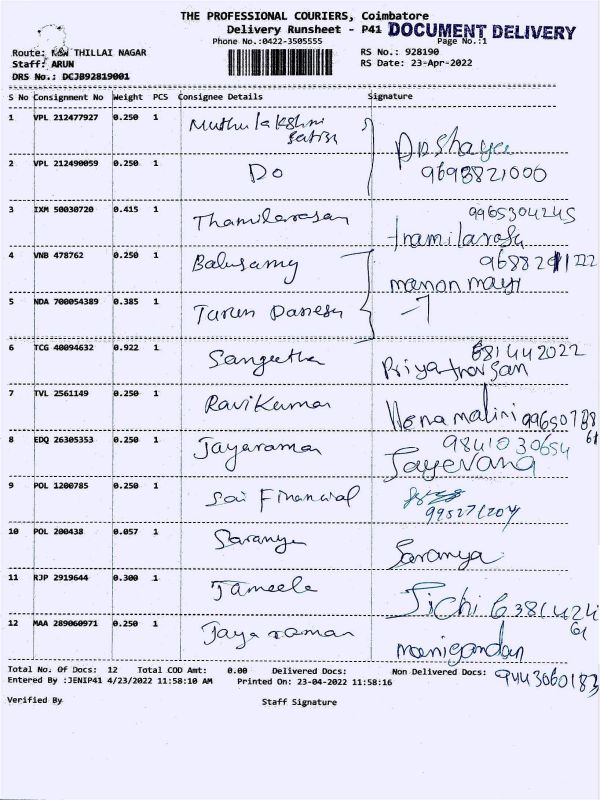 THE PROFESSIONAL COURIERS, Coimbatore
Delivery Runsheet - P41 DOCUMENT DELIVERY
Phone No.:0422-3505555 Page No.:1
Route: THILLAI NAGAR RS No.: 928190
Staff: ARUN RS Date: 23-Apr-2022
DRS No.: DCJB92819001
S No Consignment No Weight PCS Consignee Details Signature
1 VPL 212477927 0.250 1 Muthulakshmi
2 VPL 212490059 0.250 1 Do
3 IXM 50030720 0.415 1 Thamilarasan 9965304245
4 VNB 478762 0.250 1 Balusamy
5 NDA 700054389 0.385 1 Tarun
6 TCG 40094632 0.922 1 Sangeetha
7 TVL 2561149 0.250 1 Ravikumar
8 EDQ 26305353 0.250 1 Jayaraman 9841030654
9 POL 1200785 0.250 1 Sai Financial
10 POL 200438 0.057 1 Saranya Saranya
11 RJP 2919644 0.300 1 Jameela
12 MAA 289060971 0.250 1 Jayaraman manigandan
Total No. Of Docs: 12 Total COD Amt: 0.00 Delivered Docs: Non Delivered Docs: 9443060183
Entered By :JENIP41 4/23/2022 11:58:10 AM Printed On: 23-04-2022 11:58:16
Verified By Staff Signature